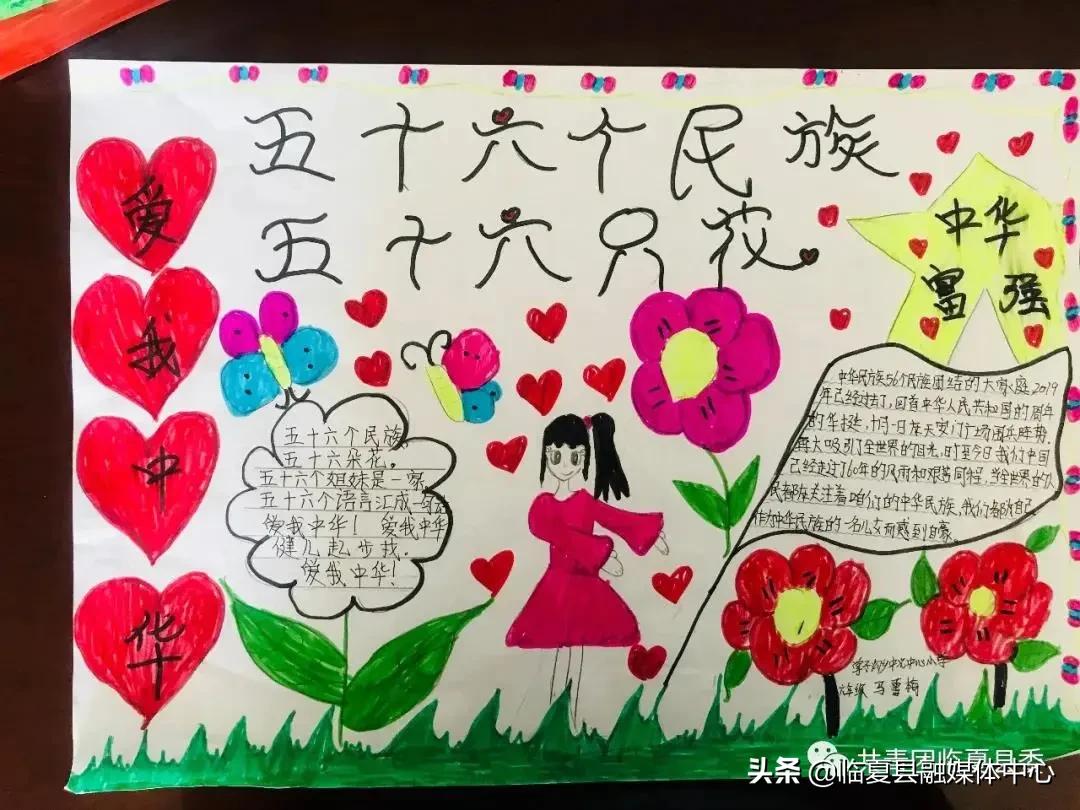 五十六个民族
五十六只花
爱
我
中
华
中华
富强
五十六个民族
五十六朵花。
五十六个姐妹是一家
五十六个语言汇成一句话
爱我中华！爱我中华
健儿起步找。
爱我中华！
中华民族56个民族团结的大家庭2019
年已经过去了，回首中华人民共和国的周年
的华诞，十月一日在天安门广场阅兵阵势
再大吸引了全世界的目光，时至今日我们中国
已经走过了60年的风雨和艰苦同程，当全世界的人
民都在关注着咱们的中华民族，我们都以自己
作为中华民族的一名儿女而感到自豪。
中心小学
六年级 马雪梅
共青团临夏县委
头条 @临夏县融媒体中心